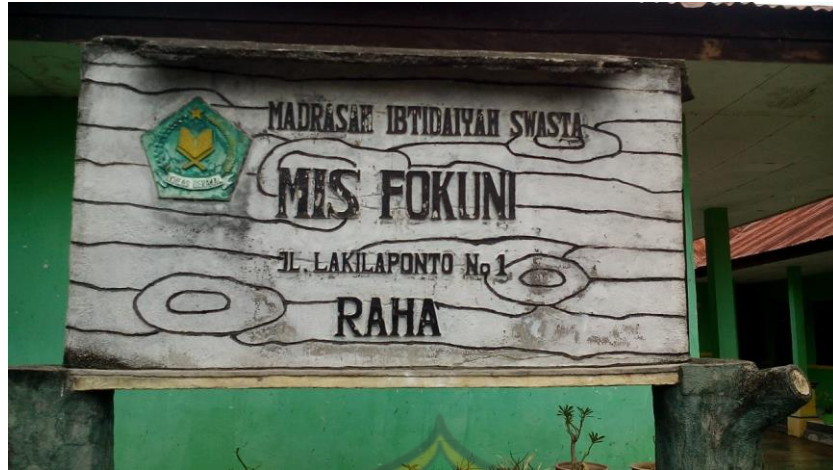 MADRASAH IBTIDAIYAH SWASTA
MIS FOKUNI
JL. LAKILAPONTO No 1
RAHA
IKHLAS BERAMAL